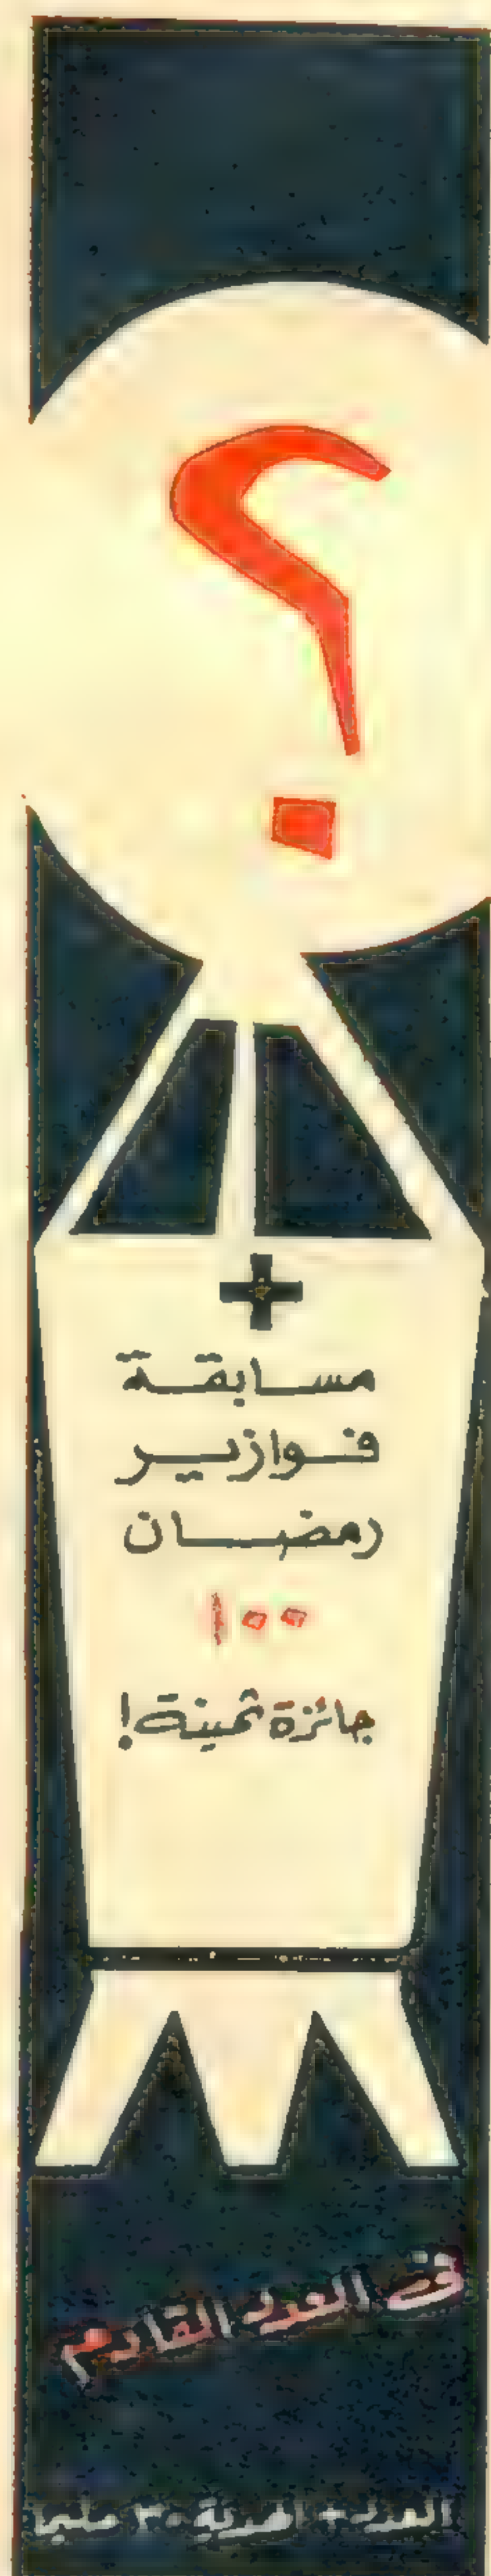 ؟
+
مسابقة
فوازير
رمضان
١٠٠
جائزة ثمينة!
فى العدد القادم
العدد + الهدية ٣٠ مليما